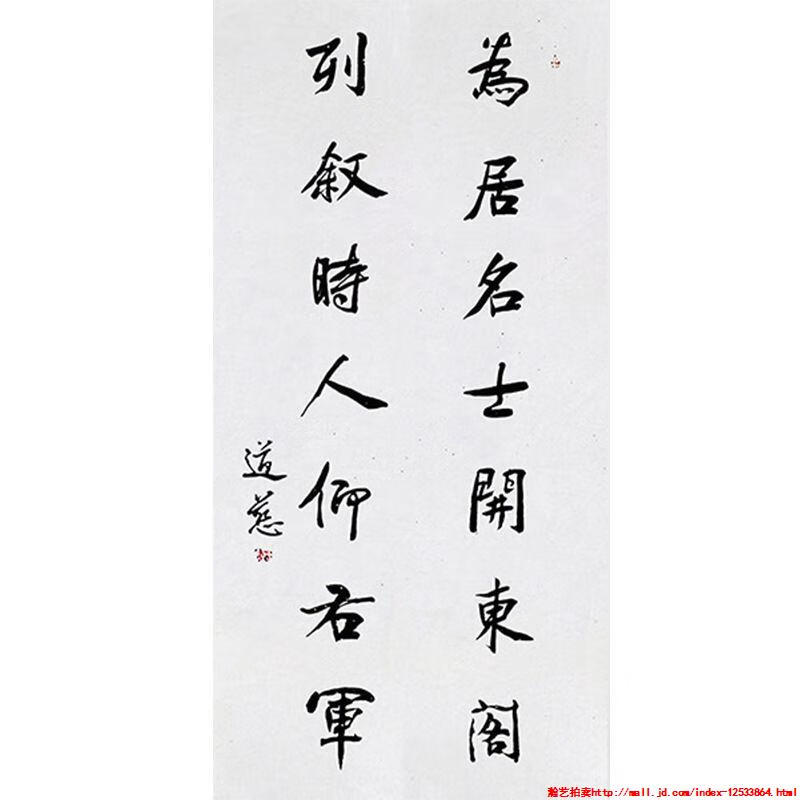 為居名士開東閣
列叙時人仰右軍
道慈
瀚艺拍卖http://mall.jd.com/index-12533864.html